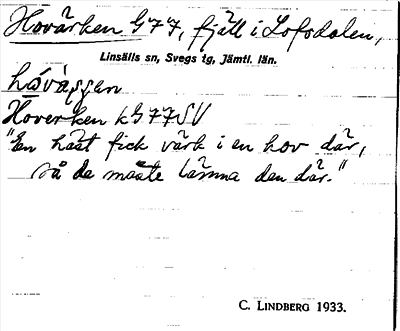 Hovärken G77, fjäll i Lofsdalen,
Linsälls sn, Svegs tg, Jämtl. län.
Hoverken kG77SV
"En häst fick värk i en hov där,
så de måste lämna den där."
C. LINDBERG 1933.